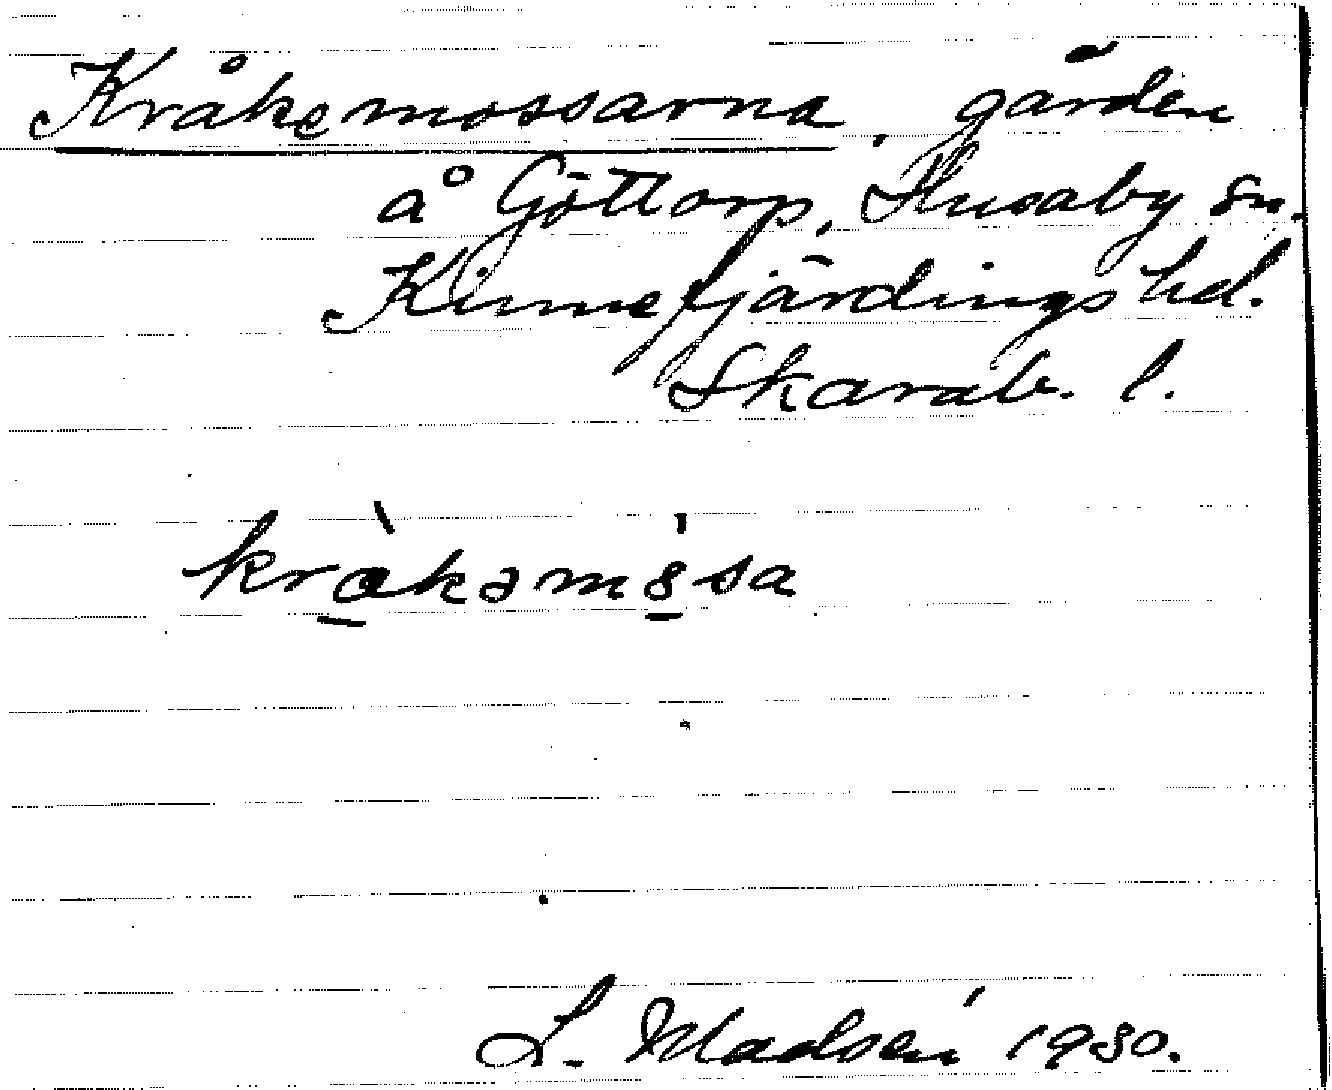 Kråkemossarna, gärden
å Göttorp, Husaby sn.
Kinnefjärdings hd.
Skarab. l.
kràkəm8́sa
L. Madsén 1930.